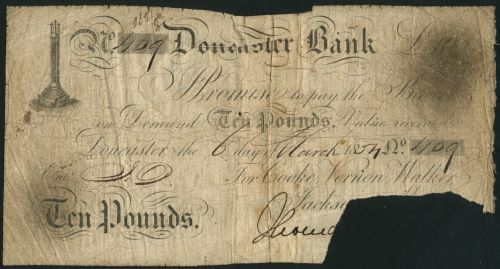 No. 409 Doncaster Bank
Promise to pay the
on Demand Ten Pounds. Value received
Doncaster the 6 day of March No. 409
Entd.
For Cooke, Vernon, Walker
Jackson
Ten Pounds.